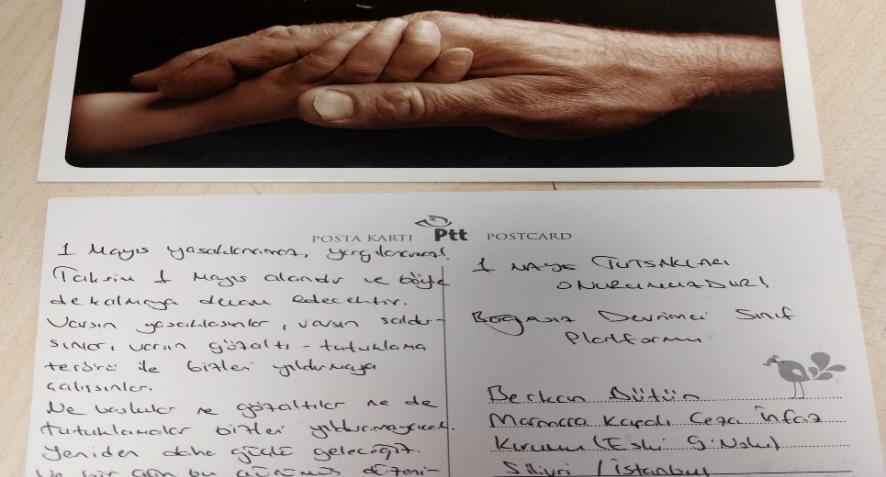 POSTA KARTI Ptt POSTCARD
1 Mayıs yasaklanamaz, yargılanamaz!
Taksim 1 Mayıs alanıdır ve böyle
de kalmaya devam edecektir.
Varsın yasaklasınlar, varsın saldır-
sınlar, varsın gözaltı - tutuklama
terörü ile bizleri yıldırmaya
çalışsınlar.
Ne baskılar ne gözaltılar ne de
tutuklamalar bizleri yıldıramayacak.
Yeniden daha güçlü geleceğiz.
Ve bir gün bu düzeni-
1 MAYIS TUTSAKLARI
ONURUMUZDUR!
Devrimci Sınıf
Platformu
Berkan Bütün
Marmara Kapalı Ceza İnfaz
Kurumu (Eski 9 Nolu)
Silivri / İstanbul